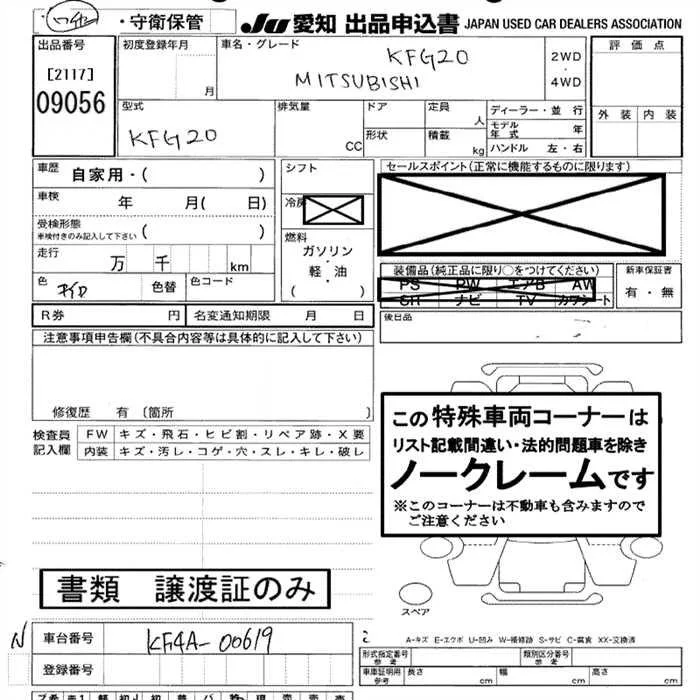 ・守衛保管 JU 愛知 出品申込書 JAPAN USED CAR DEALERS ASSOCIATION
出品番号 初度登録年月 車名・グレード
[2117] 月 KFG20 2WD・4WD 評価点
09056 MITSUBISHI
型式 排気量 ドア 定員 ディーラー・並行 外装 内装
KFG20 CC 形状 人 モデル年式 年
積載 kg ハンドル 左・右
車歴 自家用・( ) シフト セールスポイント(正常に機能するものに限ります)
車検 年 月( 日) 冷房
受検形態 車検付きのみ記入して下さい ( ) 燃料
走行 万 千 km ガソリン・軽・油 ( ) 装備品(純正品に限り○をつけてください) 新車保証書
色 色替 色コード PS PW エアB AW 有・無
SR ナビ TV カワシート
R券 円 名変通知期限 月 日 後日品
注意事項申告欄(不具合内容等は具体的に記入して下さい)
修復歴 有 〔箇所 〕
この特殊車両コーナーは
リスト記載間違い・法的問題車を除き
ノークレームです
※このコーナーは不動車も含みますので
ご注意ください
検査員記入欄 FW キズ・飛石・ヒビ割・リペア跡・X要
内装 キズ・汚レ・コゲ・穴・スレ・キレ・破レ
書類 譲渡証のみ
スペア
N 車台番号 KF4A-00619
登録番号
A-キズ E-エクボ U-凹み W-補修跡 S-サビ C-腐食 XX-交換済
形式指定番号 参考 類別区分番号 参考
車庫証明用 参考 長さ 幅 高さ